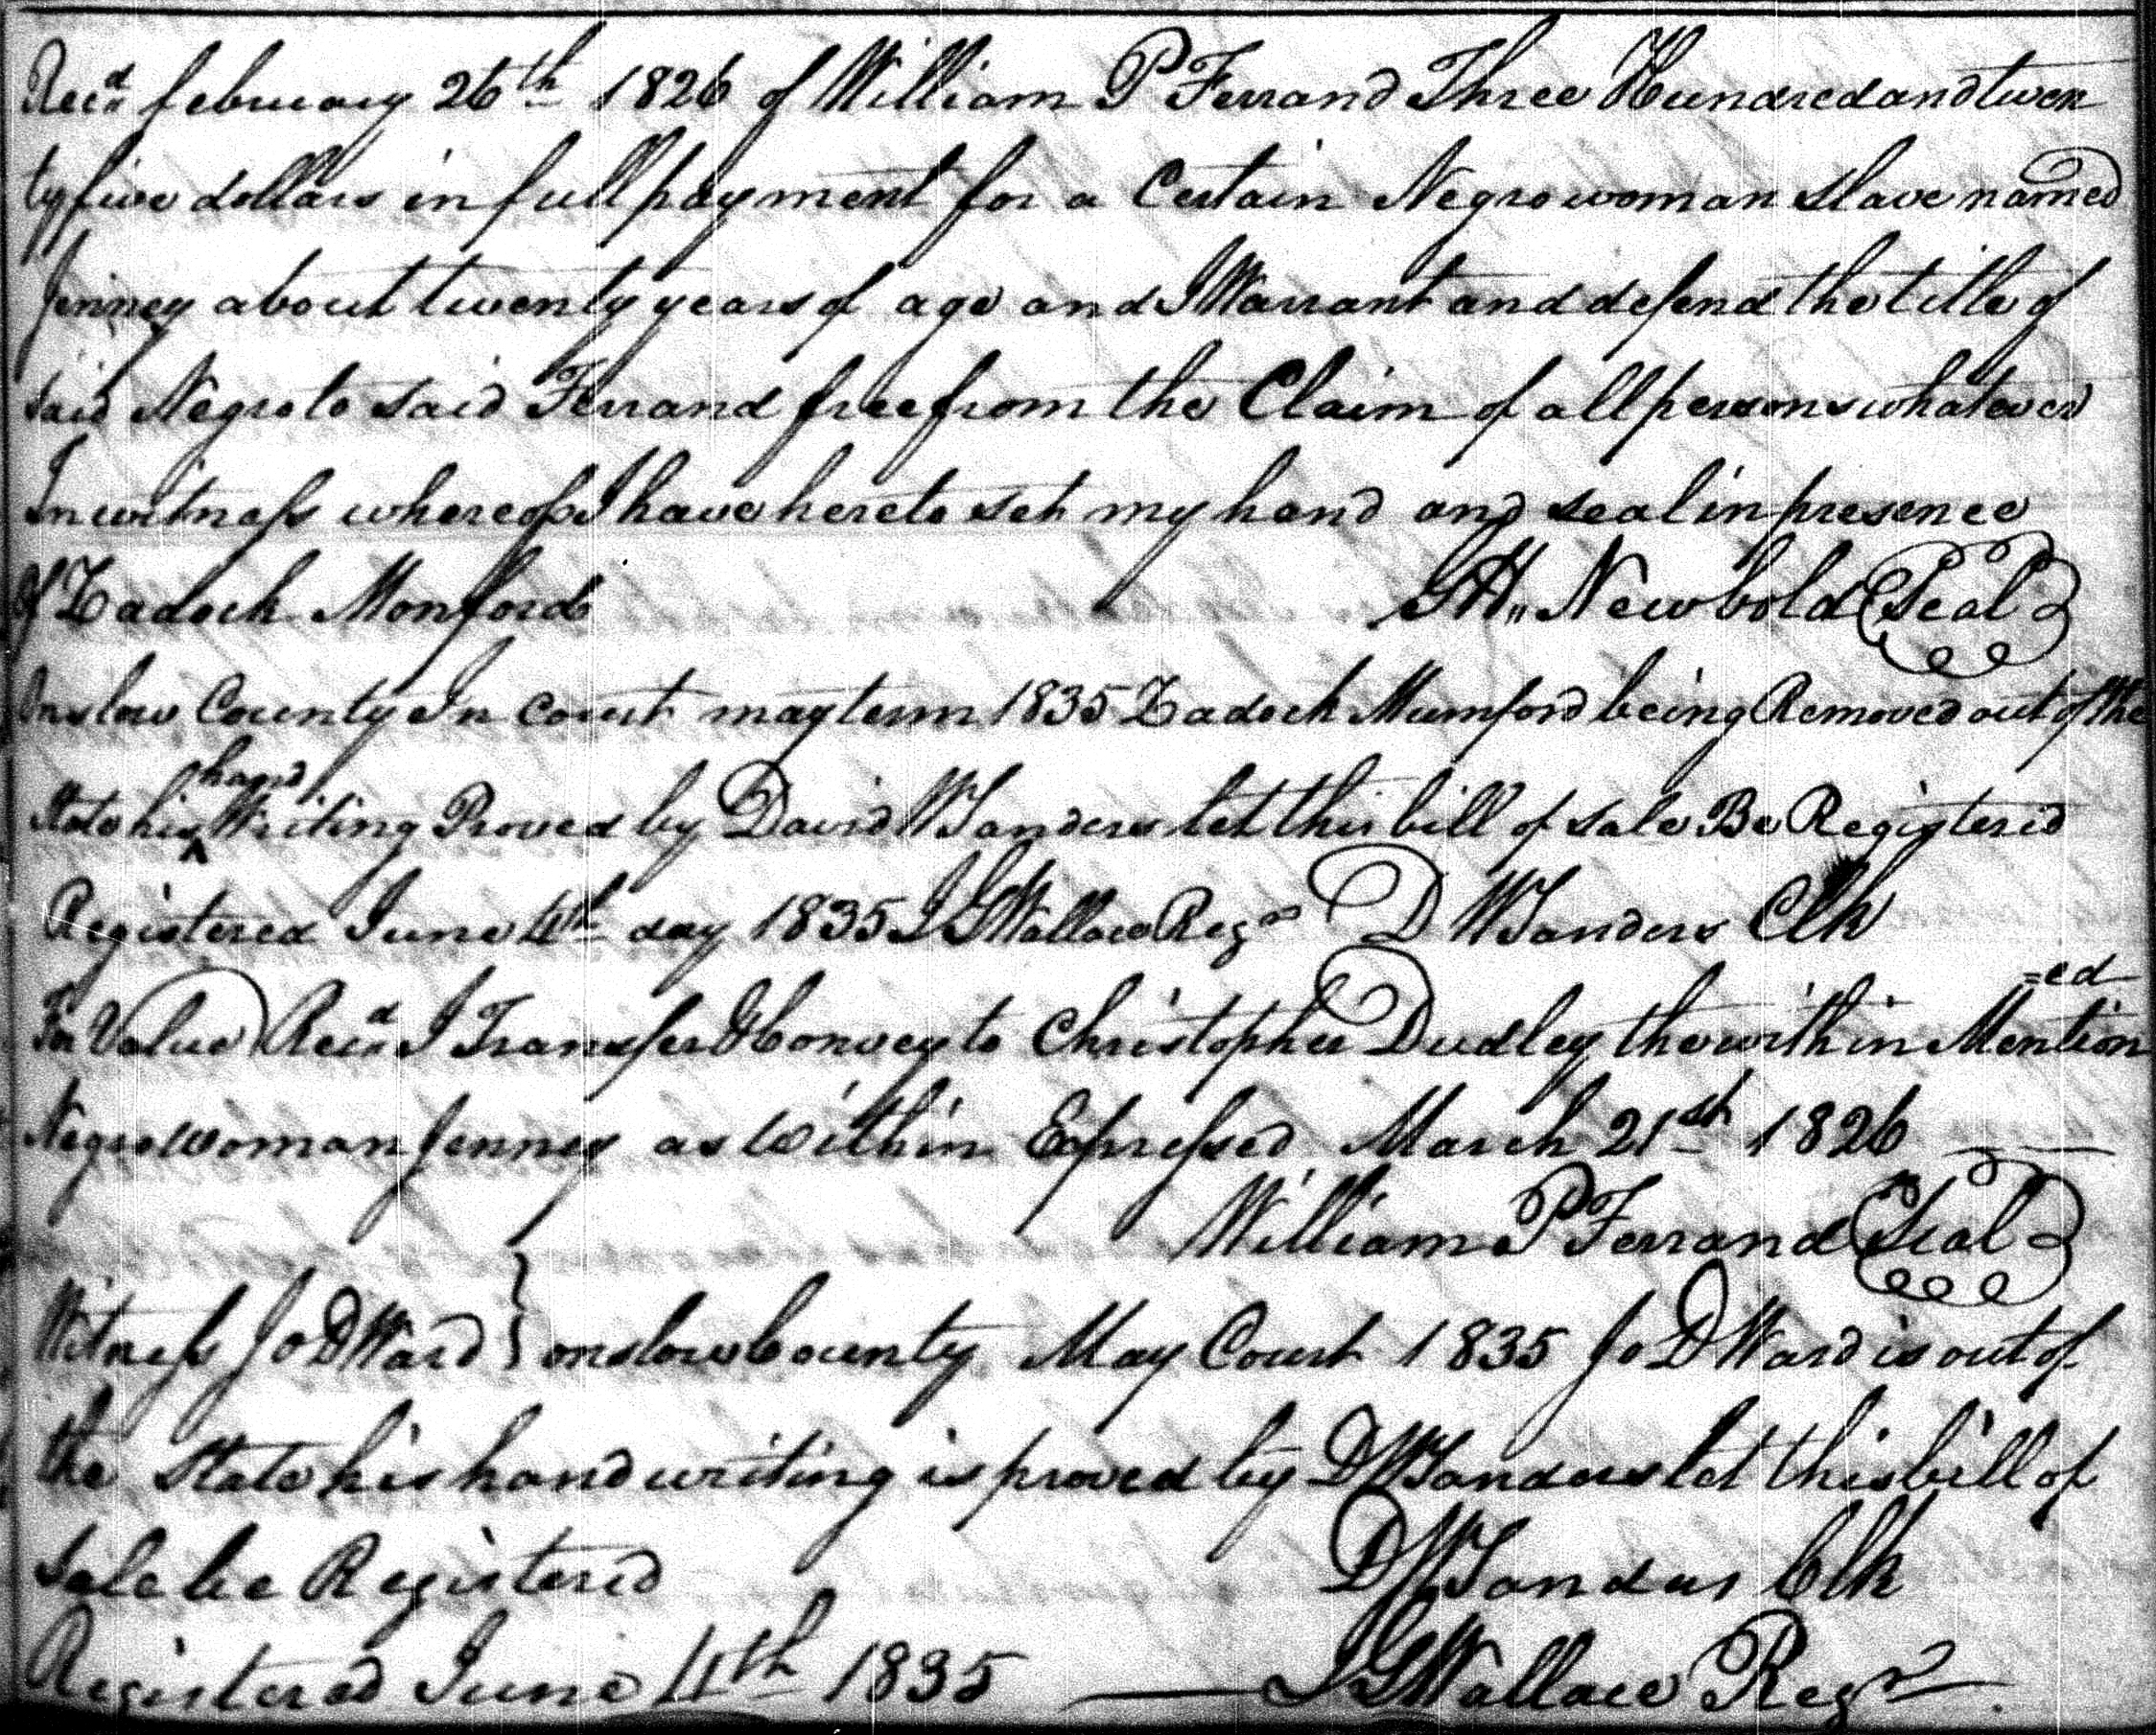 Recd february 26th 1826 of William P Ferrand Three Hundred and twen
ty five dollars in full payment for a Certain Negro woman slave named
Jenney about twenty years of age and I Warrant and defend the title of
said Negro to said Ferrand free from the Claim of all persons whatever
In witness whereof I have hereto set my hand and seal in presence
of Zadock Monford G H,, Newbold Seal
Onslow County In court may term 1835 Zadock Mumford being Removed out of the
State his hand Writing Proved by David W Sanders let this bill of sale Be Registered
Registered June 4th day 1835 J G Wallace Regr D W Sanders Clk
For Value Recd I Transfer & Convey to Christopher Dudley the within Mention
=ed
Negro woman Jenney as within Expressed March 21st 1826
William P Ferrand Seal
Witness Jo D Ward } onslow County May Court 1835 Jo D Ward is out of
the State his hand writing is proved by D W Sanders let this bill of
sale be Registered D W Sanders Clk
Registered June 4th 1835 J G Wallace Regr